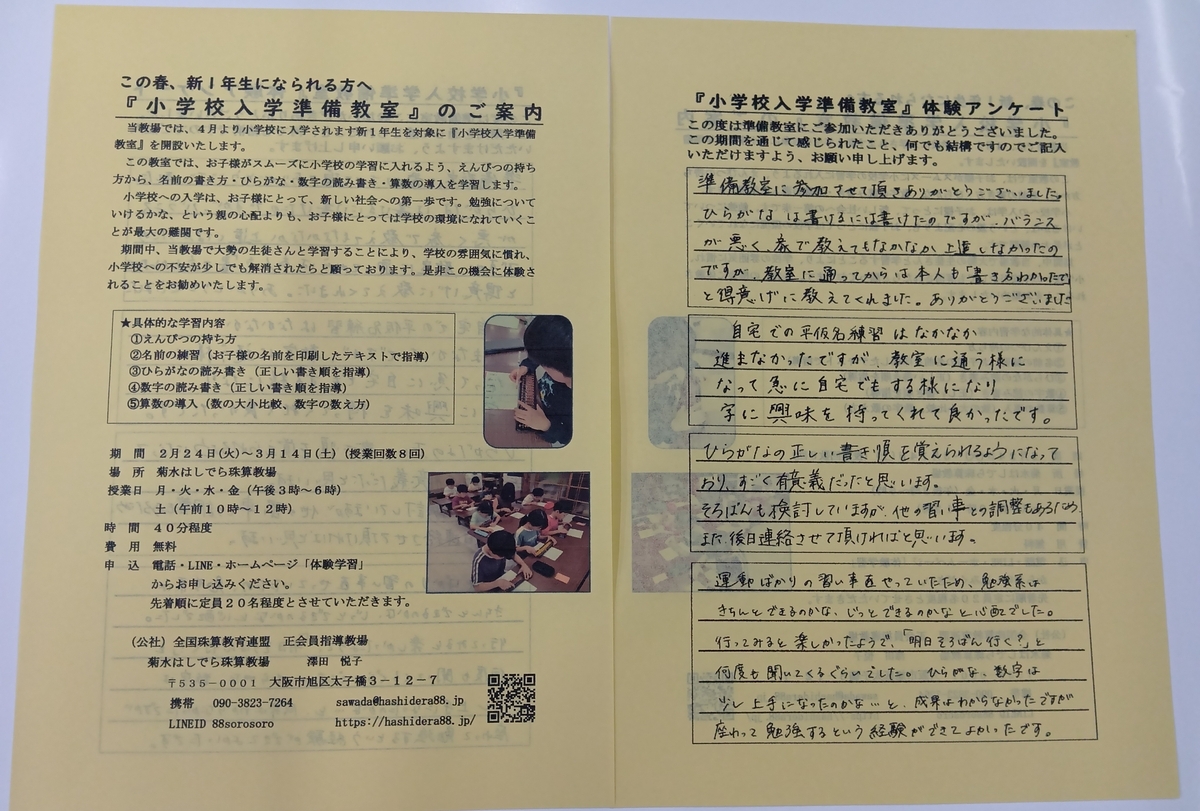 この春、新1年生になられる方へ
『小学校入学準備教室』のご案内
当教場では、4月より小学校に入学されます新1年生を対象に『小学校入学準備
教室』を開設いたします。
この教室では、お子様がスムーズに小学校の学習に入れるよう、えんぴつの持ち
方から、名前の書き方・ひらがな・数字の読み書き・算数の導入を学習します。
小学校への入学は、お子様にとって、新しい社会への第一歩です。勉強について
いけるかな、という親の心配よりも、お子様にとっては学校の環境になれていくこ
とが最大の難関です。
期間中、当教場で大勢の生徒さんと学習することにより、学校の雰囲気に慣れ、
小学校への不安が少しでも解消されたらと願っております。是非この機会に体験さ
れることをお勧めいたします。
★具体的な学習内容
①えんぴつの持ち方
②名前の練習（お子様の名前を印刷したテキストで指導）
③ひらがなの読み書き（正しい書き順を指導）
④数字の読み書き（正しい書き順を指導）
⑤算数の導入（数の大小比較、数字の数え方）
期　間　2月24日(火)～3月14日(土)（授業回数8回）
場　所　菊水はしでら珠算教場
授業日　月・火・水・金（午後3時～6時）
土（午前10時～12時）
時　間　40分程度
費　用　無料
申　込　電話・LINE・ホームページ「体験学習」
からお申し込みください。
先着順に定員20名程度とさせていただきます。
(公社) 全国珠算教育連盟　正会員指導教場
菊水はしでら珠算教場　　澤田　悦子
〒535-0001　大阪市旭区太子橋3-12-7
携帯　090-3823-7264　　sawada@hashidera88.jp
LINEID 88sorosoro　　https://hashidera88.jp/
『小学校入学準備教室』体験アンケート
この度は準備教室にご参加いただきありがとうございました。
この期間を通じて感じられたこと、何でも結構ですのでご記入
いただけますよう、お願い申し上げます。
準備教室に参加させて頂きありがとうございました。
ひらがなは書けるには書けたのですが、バランス
が悪く、家で教えてもなかなか上達しなかったの
ですが、教室に通ってからは本人も「書き方わかったで」
と得意げに教えてくれました。ありがとうございました
自宅での平仮名練習はなかなか
進まなかったですが 教室に通う様に
なって急に自宅でもする様になり
字に興味を持ってくれて良かったです。
ひらがなの正しい書き順を覚えられるようになって
おり、すごく有意義だったと思います。
そろばんも検討していますが、他の習い事との調整もあるため
また、後日連絡させて頂ければと思います。
運動ばかりの習い事をやっていたため、勉強系は
きちんとできるのかな、じっとできるのかなと心配でした。
行ってみると楽しかったようで、「明日そろばん行く？」と
何度も聞いてくるぐらいでした。ひらがな、数字は
少し上手になったのかな…と、成果はわからなかったですが
座わって勉強するという経験ができてよかったです。